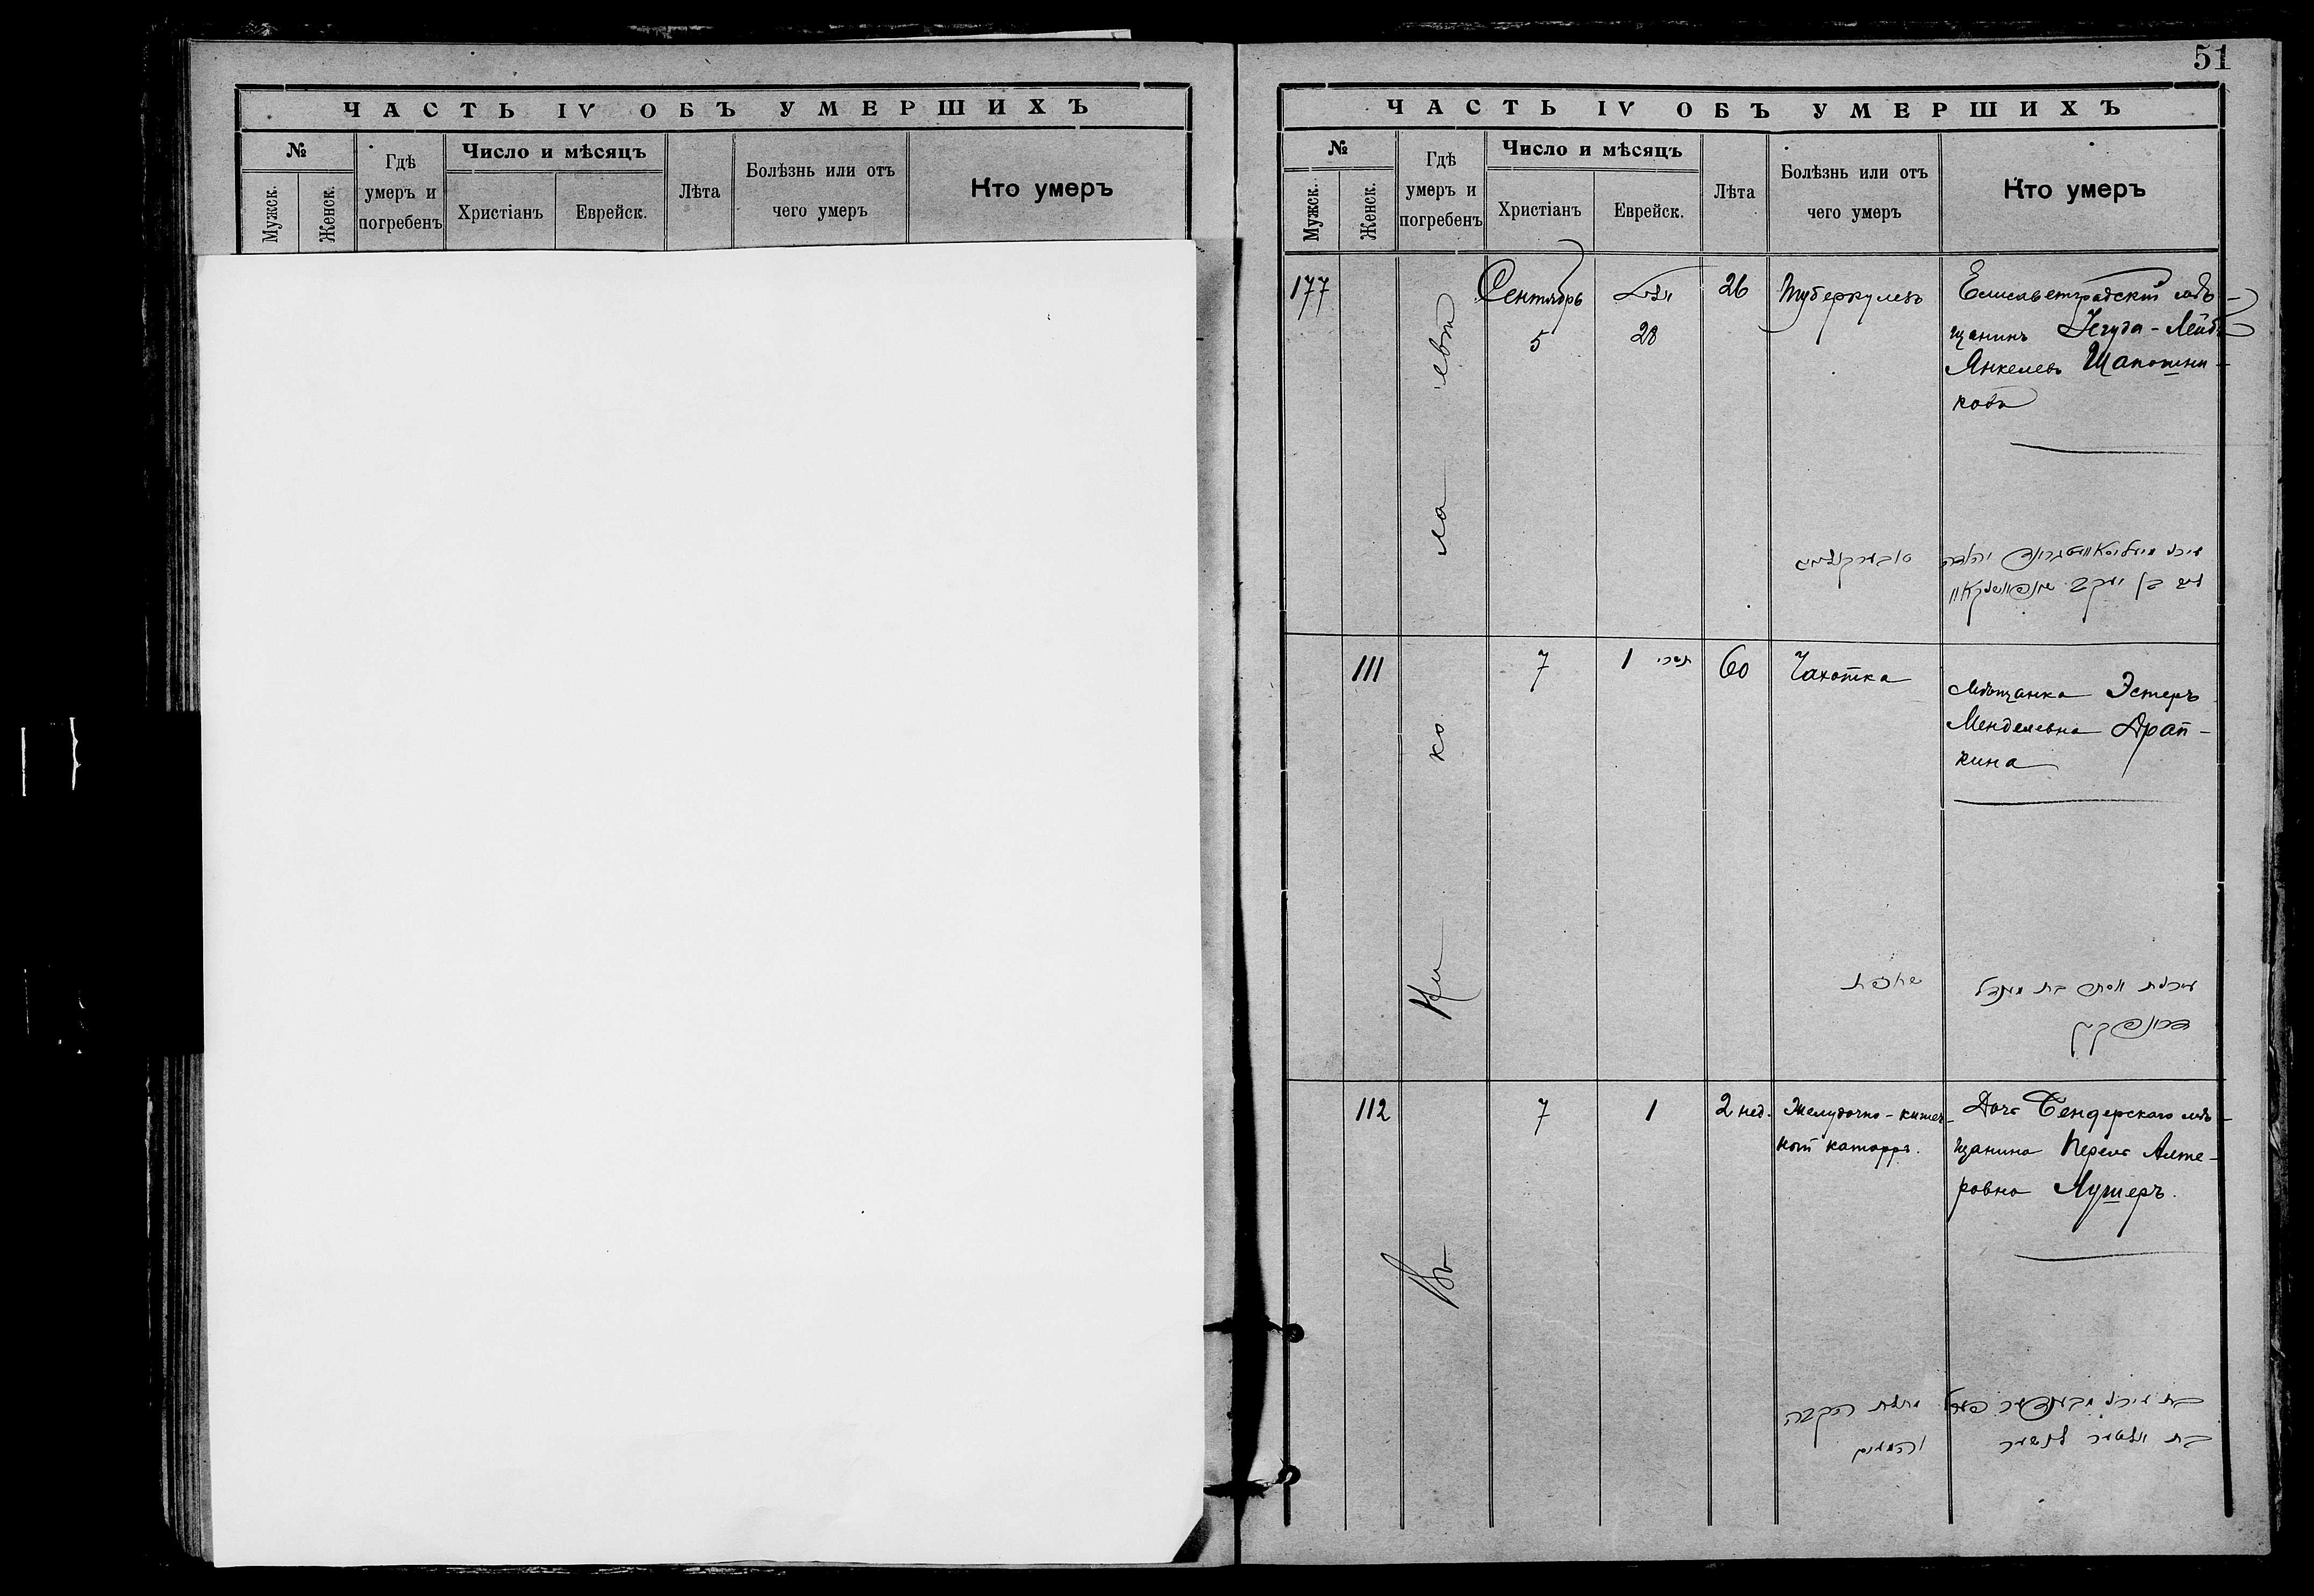 ЧАСТЬ IV ОБЪ УМЕРШИХЪ
№
Мужск.
Женск.
Гдѣ
умеръ и
погребенъ
Число и мѣсяцъ
Христіанъ
Еврейск.
Лѣта
Болѣзнь или отъ
чего умеръ
Кто умеръ
51
ЧАСТЬ IV ОБЪ УМЕРШИХЪ
№
Мужск.
Женск.
Гдѣ
умеръ и
погребенъ
Число и мѣсяцъ
Христіанъ
Еврейск.
Лѣта
Болѣзнь или отъ
чего умеръ
Кто умеръ
Въ Николаевѣ
177
Сентябрь
5
28
26
Туберкулезъ
Елисаветградскій мѣ-
щанинъ Іегуда-Лейбъ
Янкелевъ Шапошни-
ковъ
111
7
1 תשרי
60
Чахотка
Мѣщанка Эстеръ
Менделевна Драп-
кина
שחפת
עירנית אסתר בת מענדל
דראפקין
112
7
1
2 нед.
Желудочно-кишеч-
ный катарръ.
Дочь Бендерскаго мѣ-
щанина Перель Алте-
ровна Лушеръ.